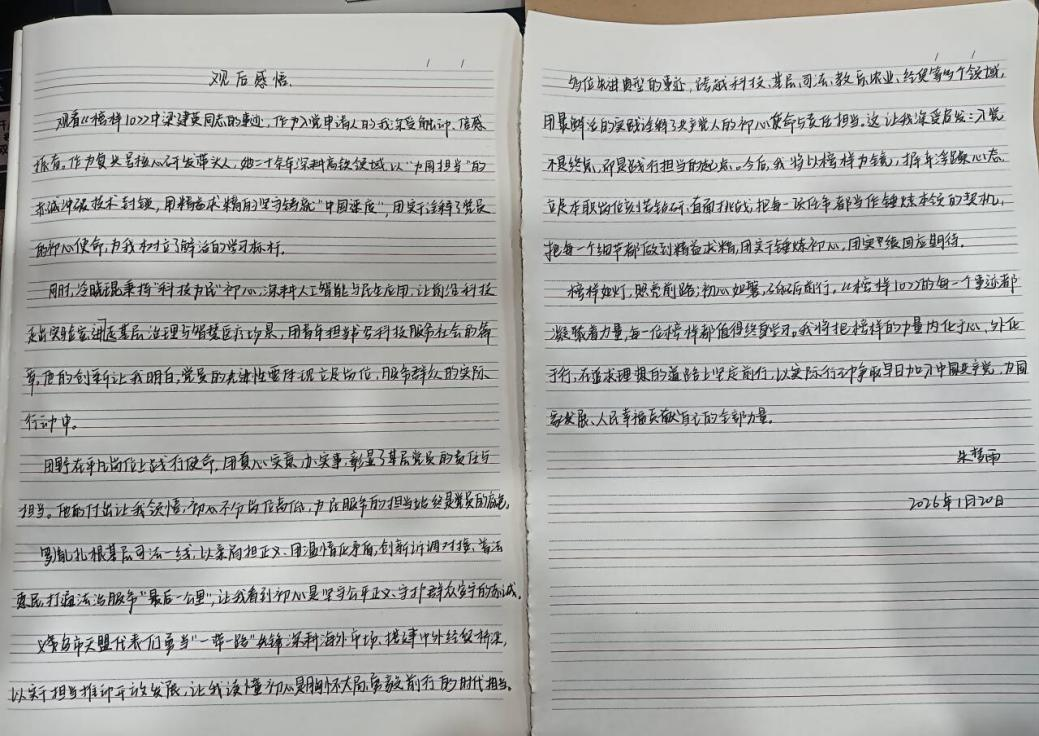 观后感悟.
观看《榜样10》中梁建英同志的事迹,作为入党申请人的我深受触动、倍感
振奋。作为复兴号核心研发带头人,她二十余年深耕高铁领域,以"为国担当"的
赤诚冲破技术封锁,用精益求精的坚守铸就"中国速度",用实干诠释了党员
的初心使命,为我树立了鲜活的学习标杆。
同时,冷晓琨秉持"科技为民"初心,深耕人工智能与民生应用,让前沿科技
走出实验室,走进基层治理与智慧医疗场景,用青年担当书写科技服务社会的篇
章,他的创新让我明白,党员的先进性要体现立足岗位,服务群众的实际
行动中。
田野在平凡岗位上践行使命,用真心实意办实事,彰显了基层党员的责任与
担当。他的付出让我领悟,初心不分岗位高低,为民服务的担当始终是党员的底色,
扎根基层司法一线,以柔肩担正义、用温情化矛盾,创新诉调对接、普法
惠民,打通法治服务"最后一公里",让我看到初心是坚守公平正义、守护群众安宁的赤诚。
义乌市天盟代表们勇当"一带一路"先锋深耕海外市场,搭建中外经贸桥梁,
以实干担当推动开放发展,让我读懂初心是胸怀大局、勇毅前行的时代担当。
多位先进典型的事迹,跨越科技、基层、司法、教育、农业、经贸等多个领域,
用最鲜活的实践诠释了共产党人的初心使命与责任担当。这让我深受启发:入党
不是终点,而是践行担当的起点。今后,我将以榜样为镜,摒弃浮躁心态,
立足本职岗位刻苦钻研、直面挑战,把每一项任务都当作锤炼本领的契机,
把每一个细节都做到精益求精,用实干锤炼初心,用实绩回应期待。
榜样如灯,照亮前路;初心如磐,笃行。《榜样10》的每一个事迹都
凝聚着力量,每一位榜样都值得终身学习。我将把榜样的力量内化于心、外化
于行,在追求理想的道路上坚定前行,以实际行动争取早日加入中国共产党,为国
家发展、人民幸福贡献自己的全部力量。
朱梦雨
2026年1月20日